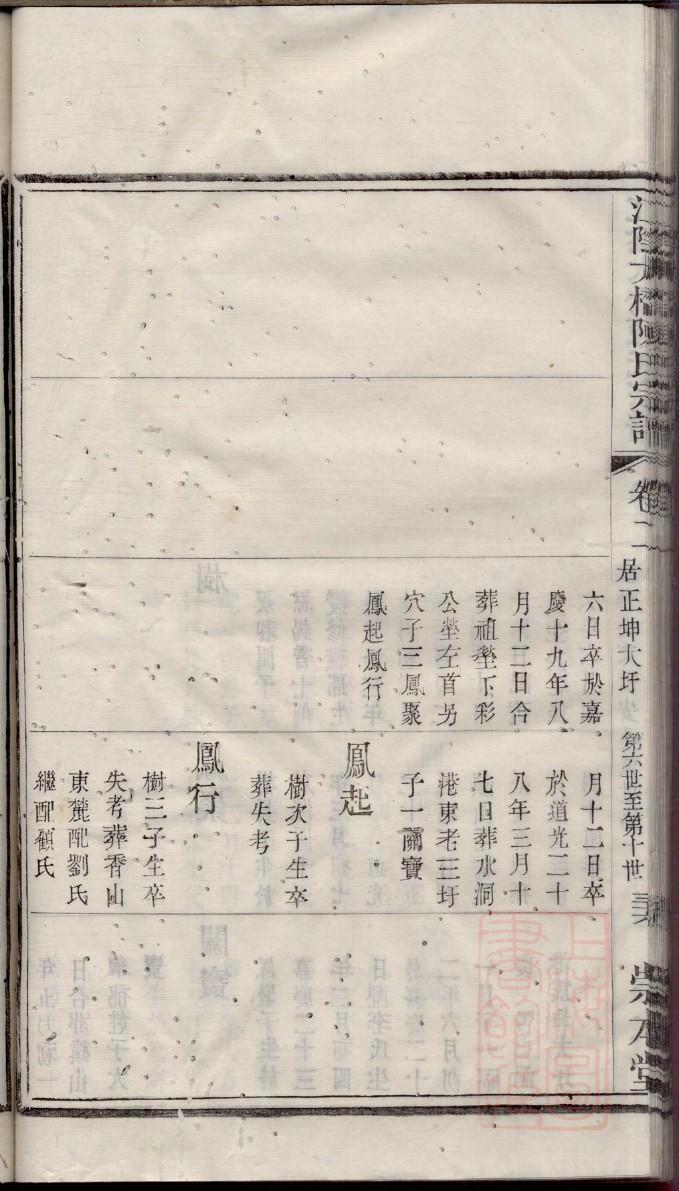 江陰大橋陳氏宗譜
卷二
居正坤大圩
第六世至第十世
崇本堂
六日卒於嘉
慶十九年八
月十二日合
葬祖塋下彩
公塋左首另
穴子三鳳聚
鳳起鳳行
月十二日卒
於道光二十
八年三月十
七日葬水洞
港東老三圩
子一關寶
鳳起
樹次子生卒
葬失考
鳳行
樹三子生卒
失考葬香山
東麓配劉氏
繼配顧氏